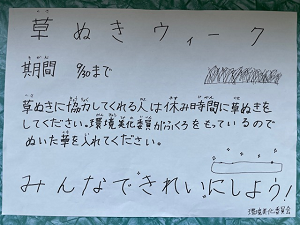 草ぬきウィーク
期間 9/30まで
草ぬきに協力してくれる人は休み時間に草ぬきを
してください。環境美化委員がふくろをもっているので
ぬいた草を入れてください。
みんなできれいにしよう!
環境美化委員会